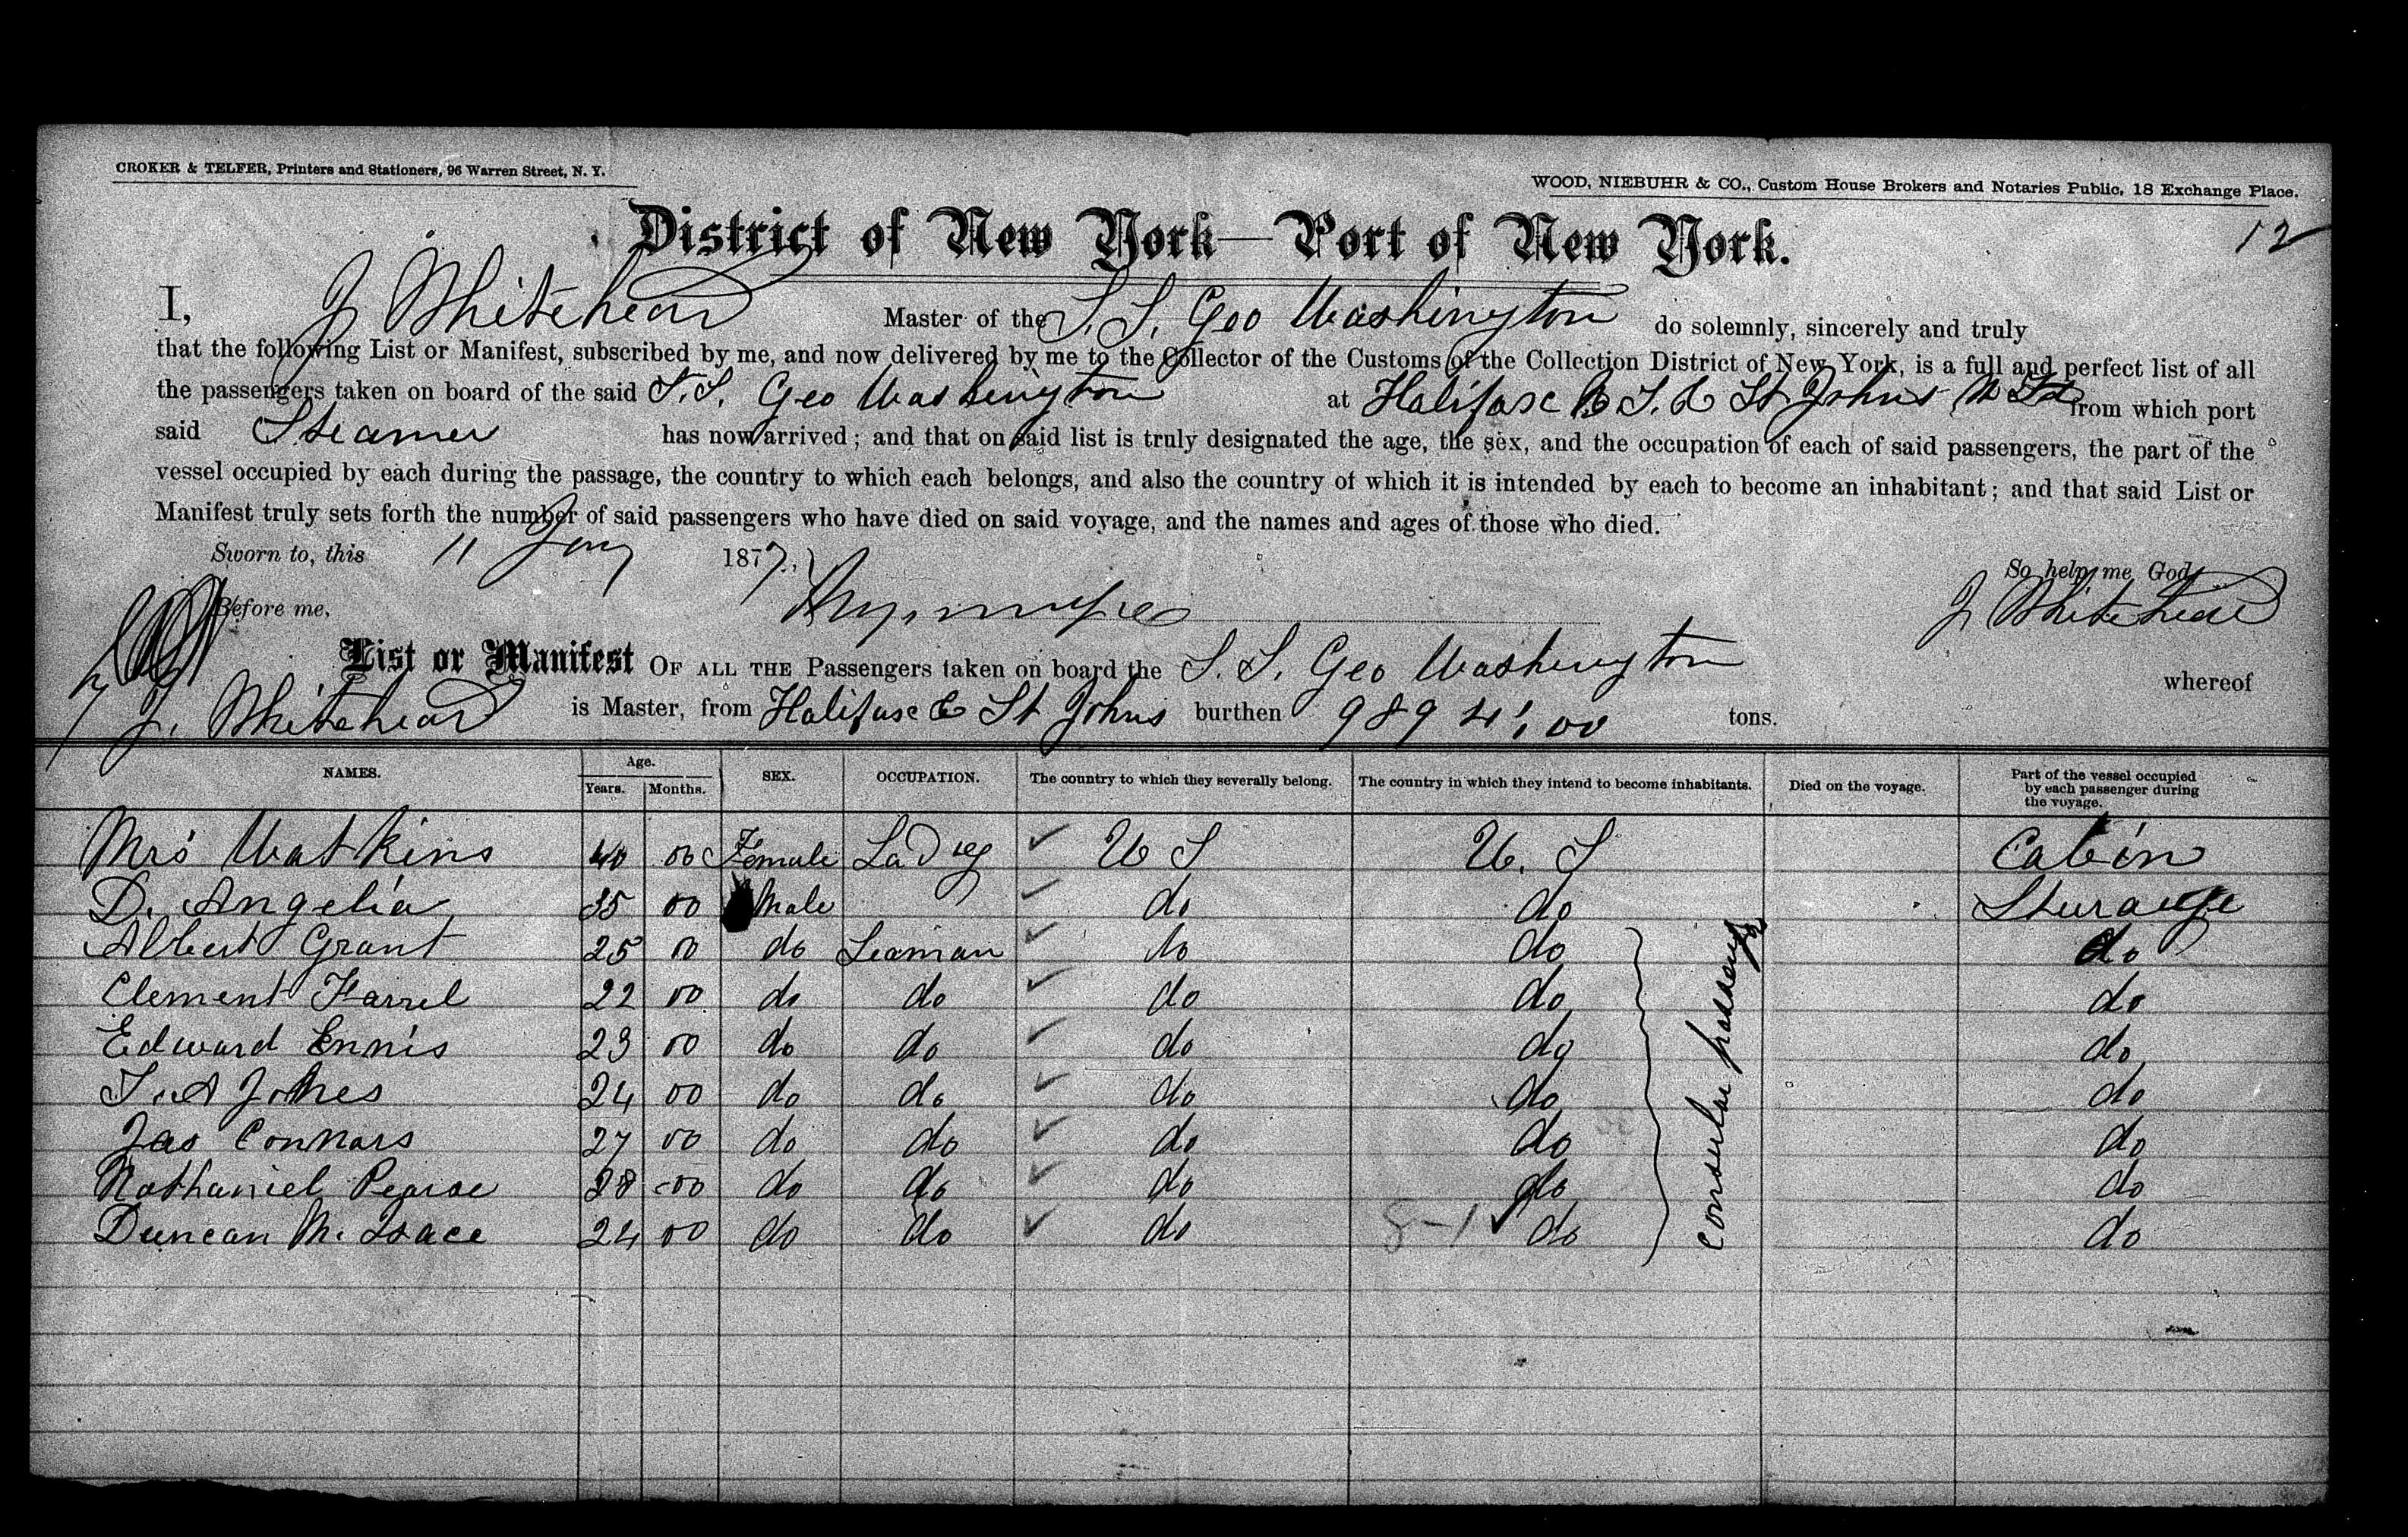 CROKER & TELFER, Printers and Stationers, 96 Warren Street, N. Y.
WOOD, NIEBUHR & CO., Custom House Brokers and Notaries Public, 18 Exchange Place.
District of New York—Port of New York.
12
I, J Whitehead Master of the S. S. Geo Washington do solemnly, sincerely and truly
that the following List or Manifest, subscribed by me, and now delivered by me to the Collector of the Customs of the Collection District of New York, is a full and perfect list of all
the passengers taken on board of the said S. S. Geo Washington at Halifax N. S. & St Johns N Fd from which port
said Steamer has now arrived; and that on said list is truly designated the age, the sex, and the occupation of each of said passengers, the part of the
vessel occupied by each during the passage, the country to which each belongs, and also the country of which it is intended by each to become an inhabitant; and that said List or
Manifest truly sets forth the number of said passengers who have died on said voyage, and the names and ages of those who died.
Sworn to, this 11 Jany 1877. So help me God,
Before me, J Whitehead
List or Manifest OF ALL THE Passengers taken on board the S. S. Geo Washington whereof
J. Whitehead is Master, from Halifax & St Johns burthen 989 41/00 tons.
NAMES. Age. Years. Months. SEX. OCCUPATION. The country to which they severally belong. The country in which they intend to become inhabitants. Died on the voyage. Part of the vessel occupied by each passenger during the voyage.
Mrs Watkins 40 00 Female Lady ✓ U S U. S Cabin
D. Angelia 35 00 Male ✓ do do Sturauge
Albert Grant 25 00 do Seaman ✓ do do do
Clement Farrel 22 00 do do ✓ do do do
Edward Ennis 23 00 do do ✓ do do do
T. A Jones 24 00 do do ✓ do do do
Jas Connars 27 00 do do ✓ do do do
Nathaniel Pearse 28 00 do do ✓ do do do
Duncan Mc Isace 24 00 do do ✓ do 8-1 ✓ do do
Consular passengs